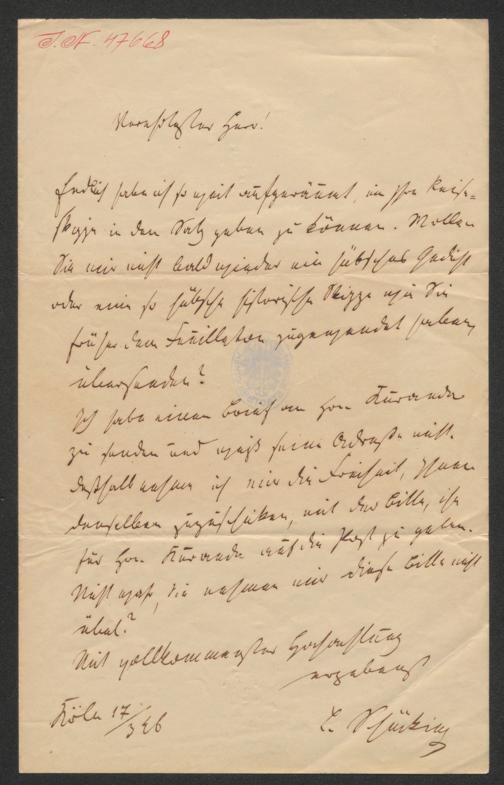 I. N. 47668
Verehrtester Herr!
Endlich habe ich so weit aufgeräumt, um Ihre Reise-
skizze in den Satz geben zu können. Wollen
Sie mir nicht bald wieder ein hübsches Gedicht
oder eine so hübsche historische Skizze wie Sie
früher dem Feuilleton zugewendet haben,
übersenden?
Ich habe einen Brief an Hrn Kuranda
zu senden und weiß seine Adresse nicht.
Deßhalb nehme ich mir die Freiheit, Ihnen
denselben zuzuschicken, mit der Bitte, ihn
für Hrn. Kuranda auf die Post zu geben.
Nicht wahr, Sie nehmen mir diese Bitte nicht
übel?
Mit vollkommenster Hochachtung
ergebenst
Köln 17/3 46
L. Schücking